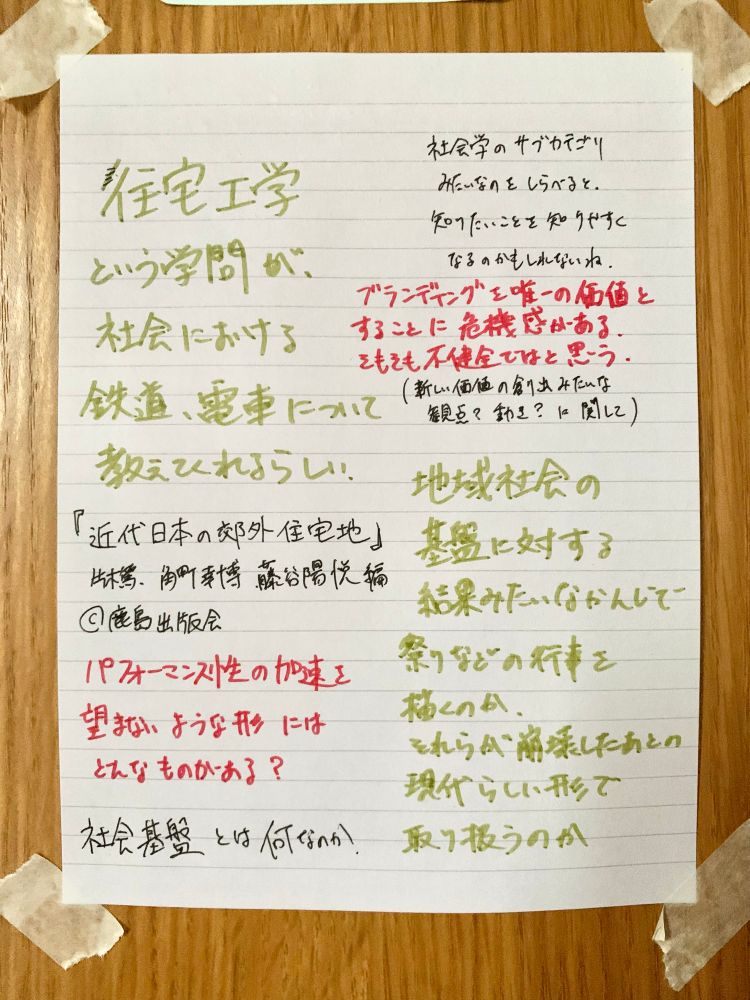 住宅工学
という学問が、
社会における
鉄道、電車について
教えてくれるらしい.
『近代日本の郊外住宅地』
片木篤、角野幸博 藤谷陽悦 編
©鹿島出版会
パフォーマンス性の加速を
望まないような形には
どんなものがある?
社会基盤とは何なのか.
社会学のサブカテゴリ
みたいなのをしらべると、
知りたいことを知りやすく
なるのかもしれないね.
ブランディングを唯一の価値と
することに危機感がある.
そもそも不健全ではと思う.
(新しい価値の創出みたいな
観点?動き?に関して)
地域社会の
基盤に対する
結果みたいなかんじで
祭りなどの行事を
描くのか.
それらが崩壊したあとの
現代らしい形で
取り扱うのか